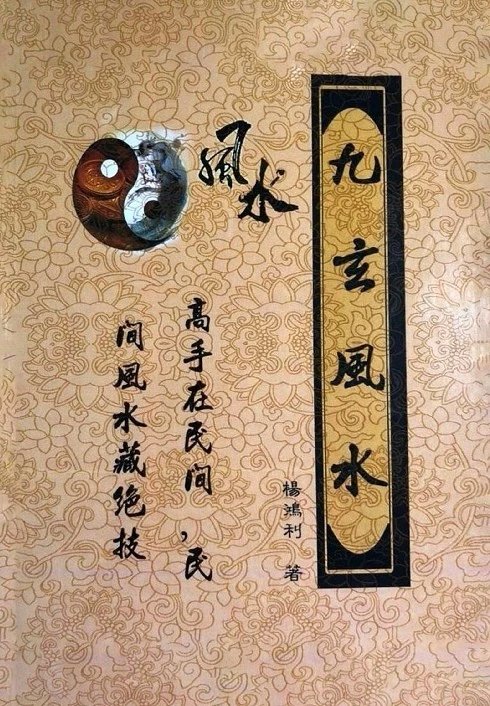 九玄風水
楊鴻利 著
風水
高手在民间，民
间風水藏绝技